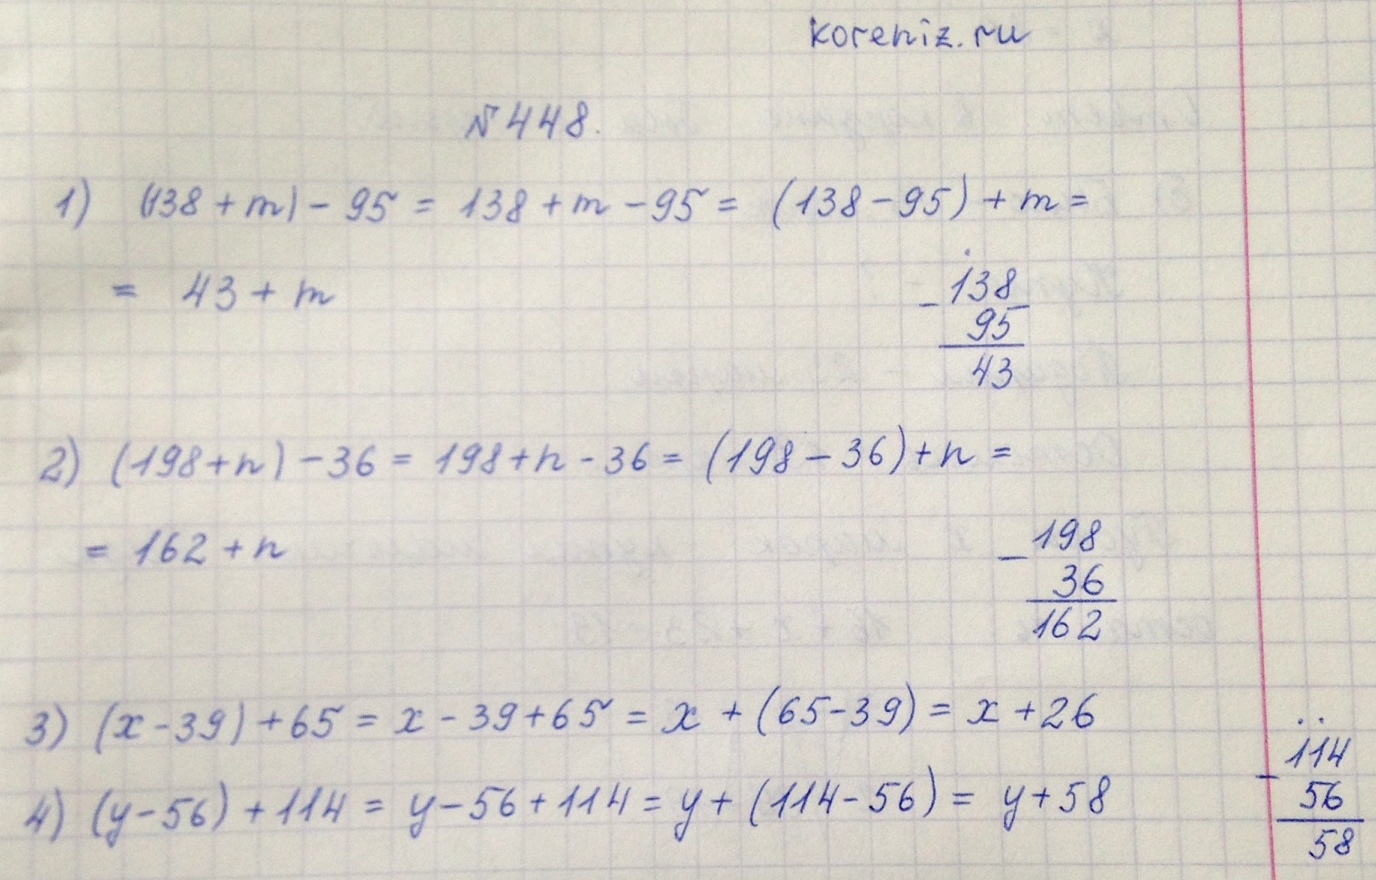 koreniz.ru
№448.
1) (138 + m) - 95 = 138 + m - 95 = (138 - 95) + m =
= 43 + m
- 138
95
43
2) (198 + n) - 36 = 198 + n - 36 = (198 - 36) + n =
= 162 + n
- 198
36
162
3) (x - 39) + 65 = x - 39 + 65 = x + (65 - 39) = x + 26
4) (y - 56) + 114 = y - 56 + 114 = y + (114 - 56) = y + 58
- 114
56
58